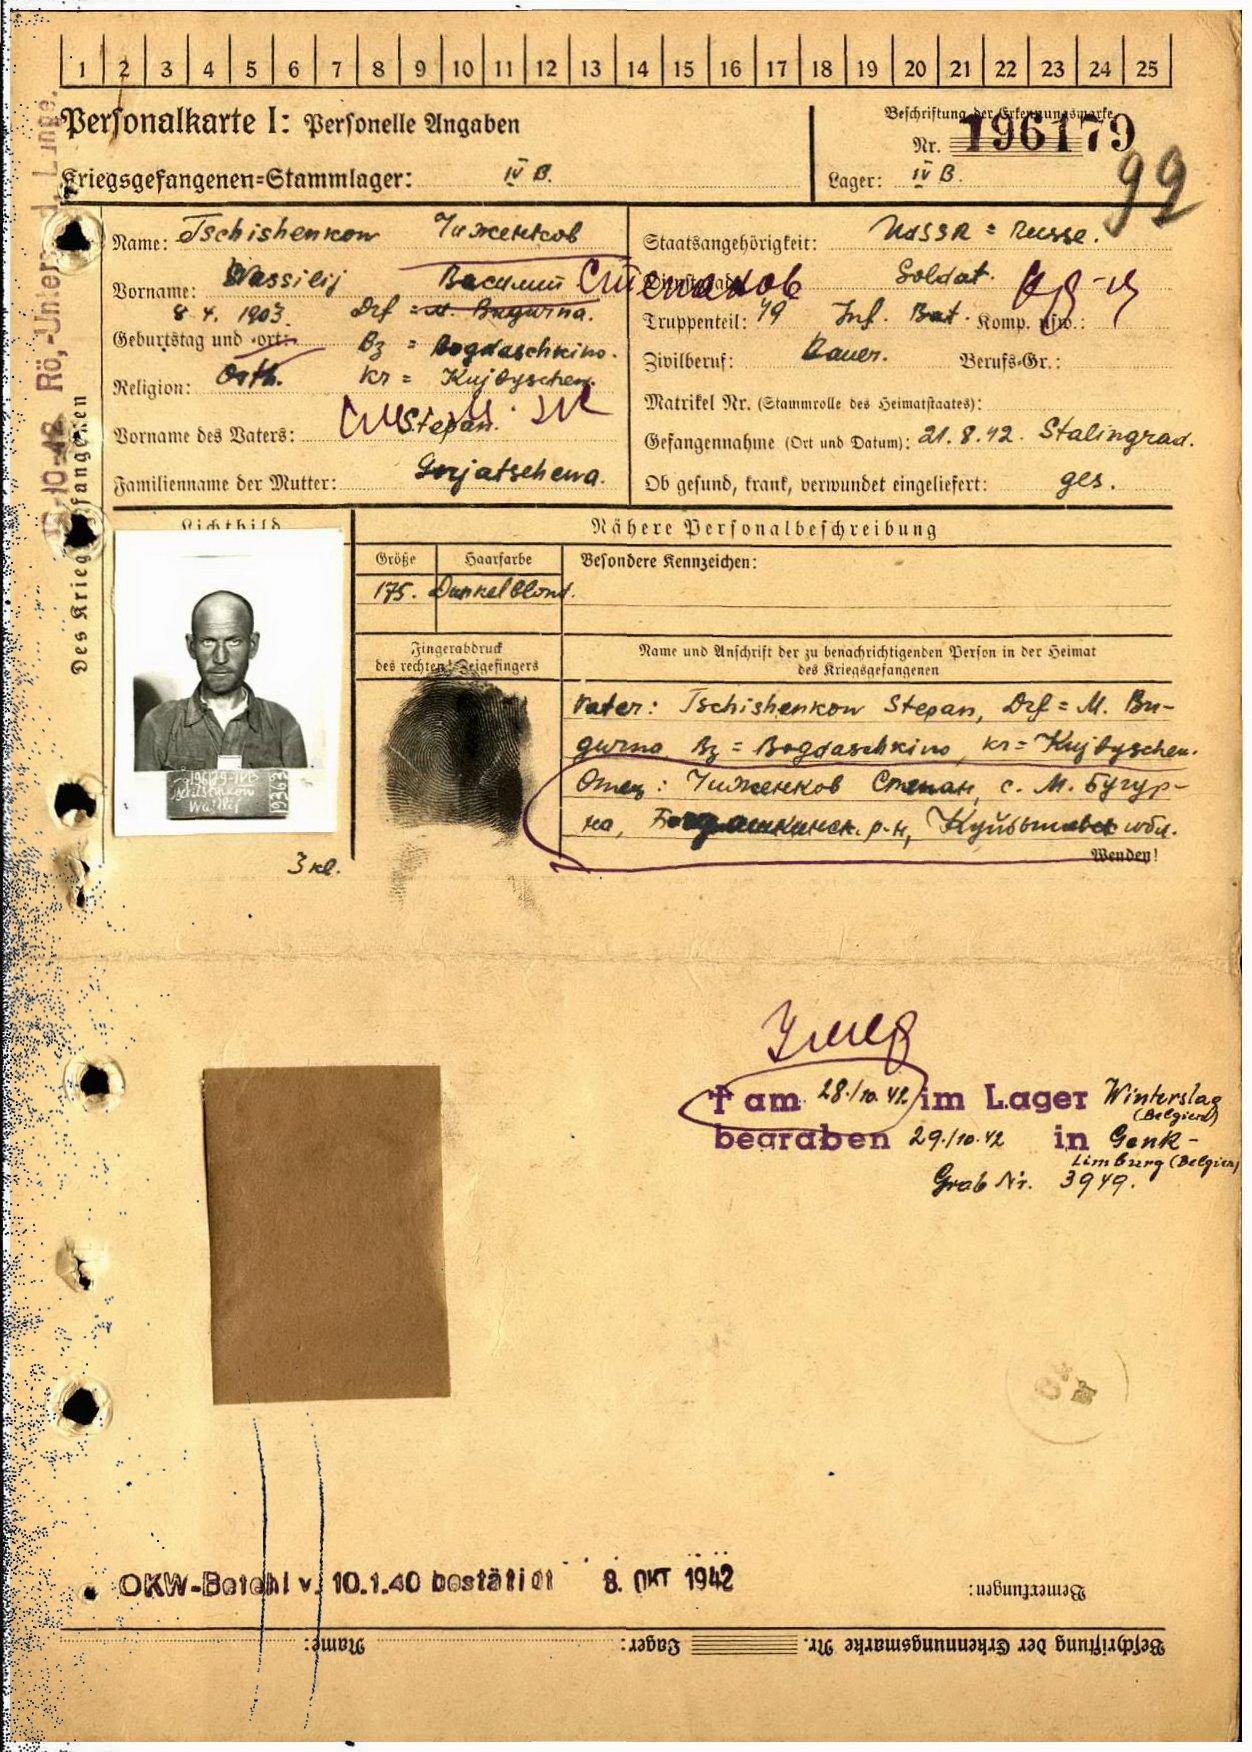 1 2 3 4 5 6 7 8 9 10 11 12 13 14 15 16 17 18 19 20 21 22 23 24 25
Personalkarte I: Personelle Angaben
Beschriftung der Erkennungsmarke
Nr. 196179
Kriegsgefangenen-Stammlager: IV B.
Lager: IV B.
99
Des Kriegsgefangenen
Name: Tschishenkow Чиженков
Vorname: Wassilij Василий Степанов
Geburtstag und -ort: 8.4.1903. Drf = M. Bugurna.
Bz = Bogdaschkino.
Religion: Orth. kr = Kujbyschew.
Vorname des Vaters: Stepan.
Familienname der Mutter: Gorjatschewa.
Staatsangehörigkeit: UdSSR = Russe.
Soldat.
Truppenteil: 79 Inf. Bat. Komp. usw.:
Zivilberuf: Bauer. Berufs-Gr.:
Matrikel Nr. (Stammrolle des Heimatstaates):
Gefangennahme (Ort und Datum): 21.8.42. Stalingrad.
Ob gesund, krank, verwundet eingeliefert: ges.
Lichtbild
Nähere Personalbeschreibung
Größe Haarfarbe Besondere Kennzeichen:
175. Dunkelblond.
Fingerabdruck
des rechten Zeigefingers
Name und Anschrift der zu benachrichtigenden Person in der Heimat
des Kriegsgefangenen
Vater: Tschishenkow Stepan, Drf = M. Bu-
gurna, Bz = Bogdaschkino, kr = Kujbyschew.
Отец: Чиженков Степан, с. М. Бугур-
на, Богдашкинск. р-н, Куйбышевск обл.
Wenden!
196179-IVB
Tschischenkow
Wassilij
19363
3 кл.
Умер
† am 28./10.42 im Lager Winterslag
(Belgien)
begraben 29./10.42 in Genk-
Limburg (Belgien)
Grab Nr. 3949.
OKW-Befehl v. 10.1.40 bestätigt 8. OKT 1942
Bemerkungen:
Beschriftung der Erkennungsmarke Nr. Lager: Name: